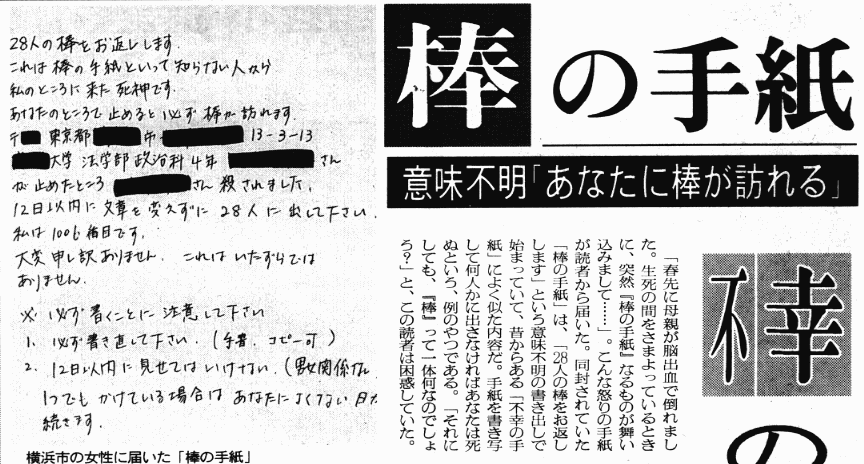 棒の手紙
意味不明「あなたに棒が訪れる」
「春先に母親が脳出血で倒れまし
た。生死の間をさまよっているとき
に、突然『棒の手紙』なるものが舞い
込みまして……」。こんな怒りの手紙
が読者から届いた。同封されていた
「棒の手紙」は、「28人の棒をお返し
します」という意味不明の書き出しで
始まっていて、昔からある「不幸の手
紙」によく似た内容だ。手紙を書き写
して何人かに出さなければあなたは死
ぬという、例のやつである。「それに
しても、『棒』って一体何なのでしょ
う?」と、この読者は困惑していた。
不幸
の
28人の棒をお返しします.
これは棒の手紙といって知らない人から
私のところに来た死神です.
あなたのところで止めると必ず棒が訪れます.
〒 東京都 市 13-3-13
大学 法学部政治科4年 さん
が止めたところ さん殺されました.
12日以内に文章を変えずに28人に出して下さい.
私は1006番目です.
大変申し訳ありません. これはいたずらでは
ありません.
※ 必ず書くことに注意して下さい
1. 必ず書き直して下さい.(手書.コピー可)
2. 12日以内に見せてはいけない.(男女関係な
1つでもかけている場合はあなたによくない日が
続きます.
横浜市の女性に届いた「棒の手紙」